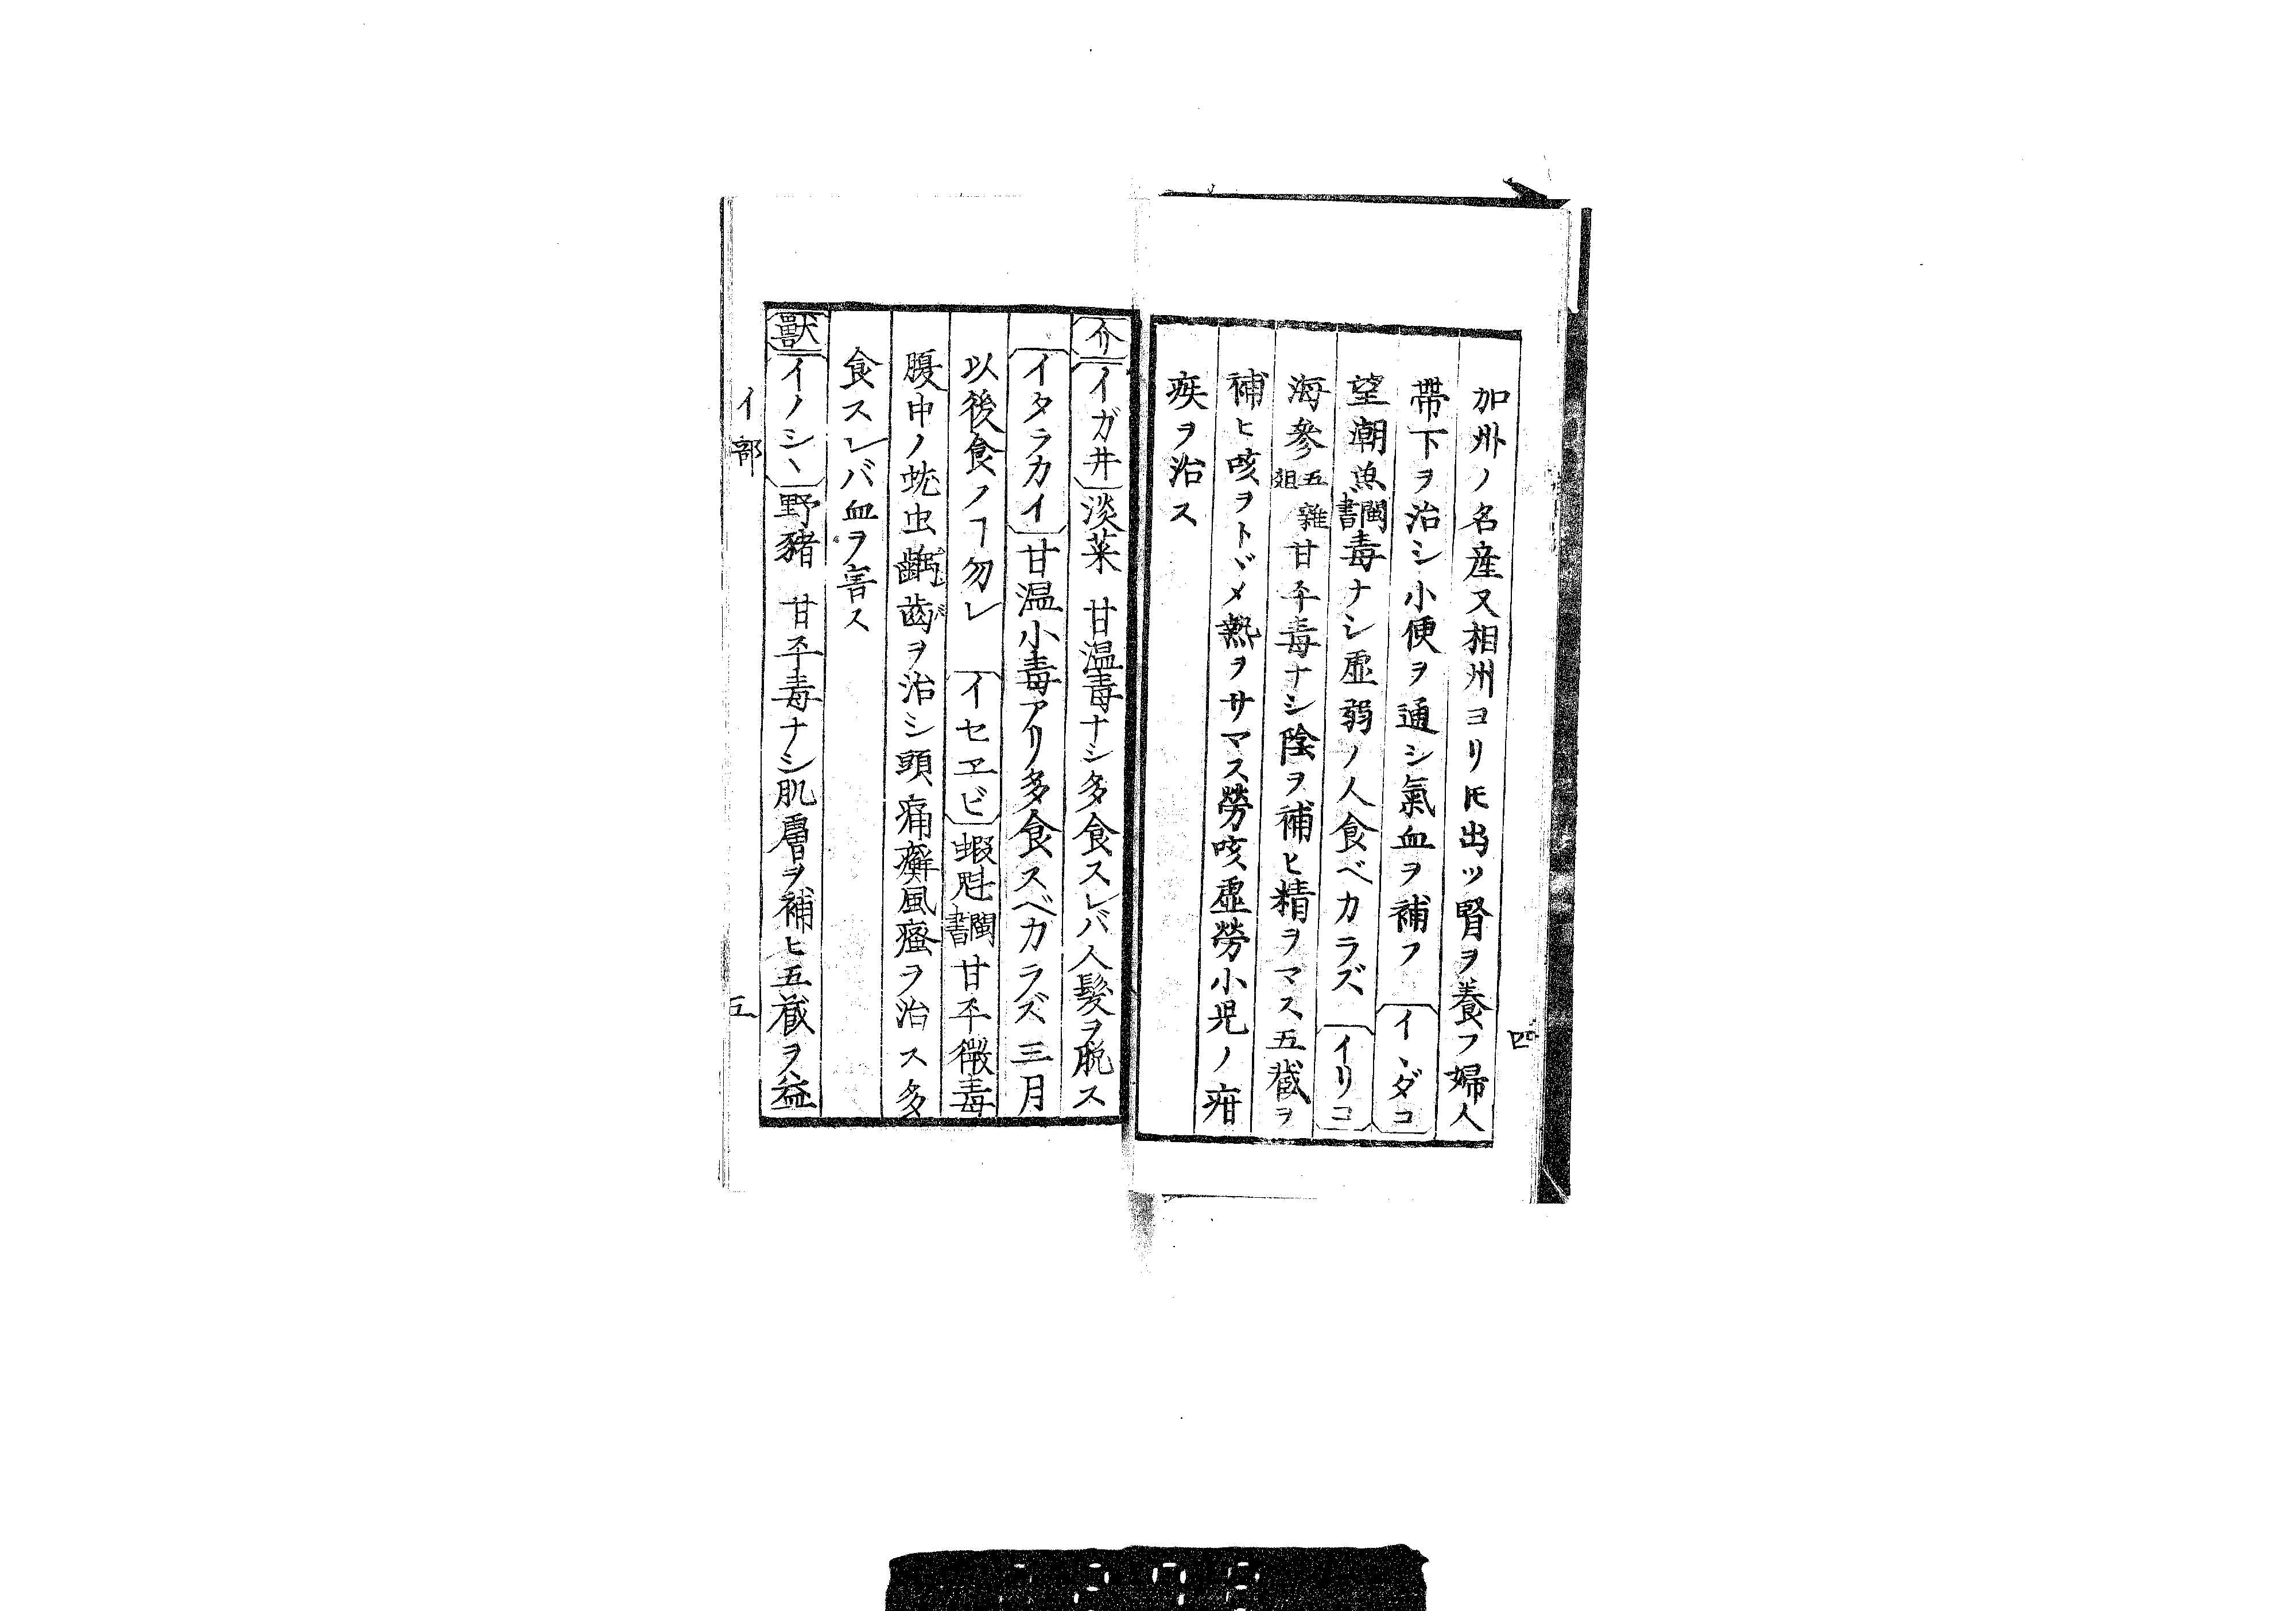 加州ノ名産又相州ヨリモ出ツ腎ヲ養フ婦人
帶下ヲ治シ小便ヲ通シ氣血ヲ補フ イヽダコ
望潮魚閩書毒ナシ虚弱ノ人食ベカラズ イリコ
海參五雜俎甘平毒ナシ陰ヲ補ヒ精ヲマス五藏ヲ
補ヒ咳ヲトヾメ熱ヲサマス勞咳虚勞小児ノ疳
疾ヲ治ス
四
介 イガ井 淡菜 甘温毒ナシ多食スレバ人髮ヲ脱ス
イタラカイ 甘温小毒アリ多食スベカラズ三月
以後食フヿ勿レ イセヱビ 蝦魁閩書甘平微毒
腹中ノ蚘虫齲齒ヲ治シ頭痛癬風瘙ヲ治ス多
食スレバ血ヲ害ス
獸 イノシヽ 野豬 甘平毒ナシ肌膚ヲ補ヒ五藏ヲ益
イ部 五